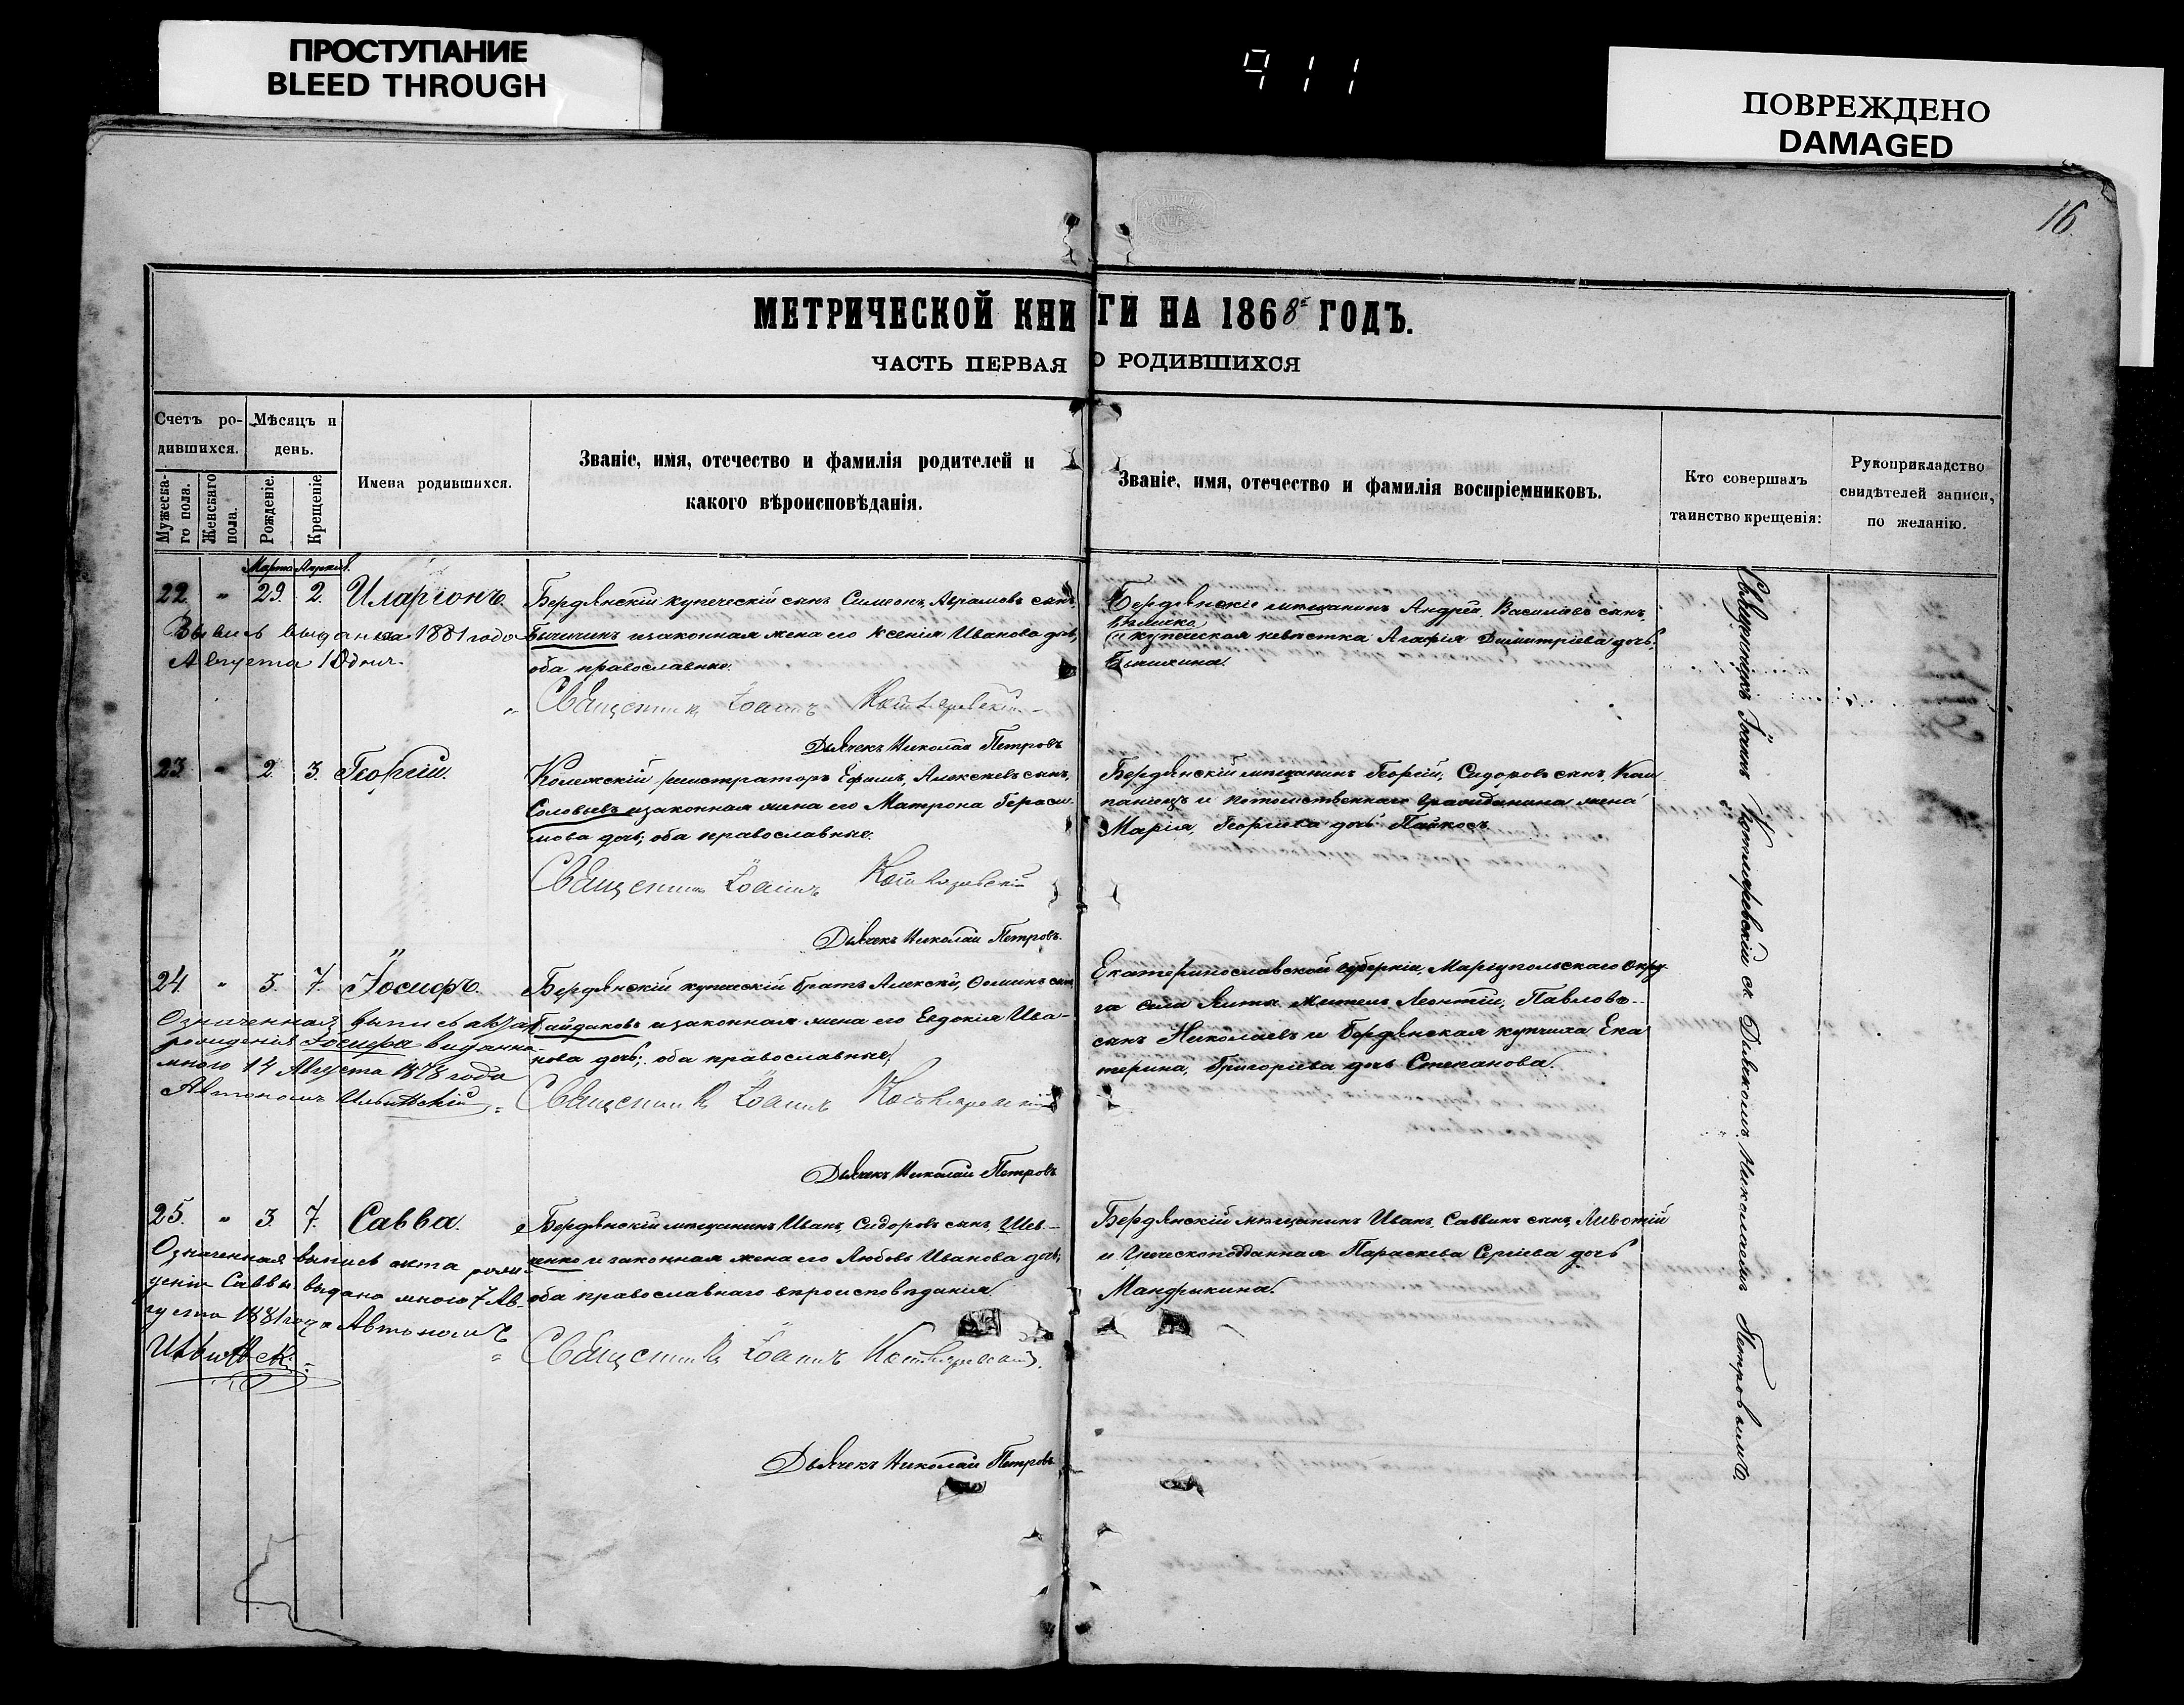 ПРОСТУПАНИЕ
BLEED THROUGH
911
ПОВРЕЖДЕНО
DAMAGED
16
МЕТРИЧЕСКОЙ КНИГИ НА 1868 ГОДЪ.
ЧАСТЬ ПЕРВАЯ О РОДИВШИХСЯ
Счетъ ро-
дившихся.
Мужеска-
го пола.
Женскаго
пола.
Мѣсяцъ и
день.
Рожденіе.
Крещеніе
Имена родившихся.
Званіе, имя, отечество и фамилія родителей и
какого вѣроисповѣданія.
Званіе, имя, отечество и фамилія воспріемниковъ.
Кто совершалъ
таинство крещенія:
Рукоприкладство
свидѣтелей записи,
по желанію.
Марта Апрѣл.
22 " 29. 2. Иларіонъ.
Выпись выдана 1881 года
Августа 18 дня.
Бердянскій купеческій сынъ Симеонъ, Аврамовъ сынъ,
и законная жена его Ксенія Иванова дочь,
оба православные.
Священникъ Іоаннъ Котляревскій
Дьячекъ Николай Петровъ
Бердянскіе мѣщанинъ Андрей, Василіевъ сынъ,
и купеческая невѣстка Агафія Димитріева дочь
23 " 2. 3. Георгій.
Колежскій регистраторъ Ефимъ, Алексѣевъ сынъ,
Соловьевъ и законная жена его Матрона Гераси-
мова дочь, оба православные.
Священникъ Іоаннъ Котляревскій
Дьячекъ Николай Петровъ.
Бердянскій мѣщанинъ Георгій, Сидоровъ сынъ, Ком
панiецъ и потомственнаго гражданина жена
Марія, Георгіева дочь
24. " 5. 7. Іосифъ.
Означенная выпись акта
рожденія Іосифа выдана
мною 14 Августа 1878 года
Автономъ Ильинскій
Бердянскій купеческій братъ Алексѣй, Ѳоминъ сынъ
Гайдаковъ и законная жена его Евдокія Ива-
нова дочь, оба православные.
Священникъ Іоаннъ Котляревскій
Дьячекъ Николай Петровъ
Екатеринославской губерніи, Маріупольскаго окру-
га села Ялты житель Леонтій, Павловъ
сынъ Николаевъ и Бердянская купчиха Ека
терина, Григоріева дочь Степанова.
25. " 3. 7. Савва.
Означенная выпись акта рож-
денія Саввы выдана мною 7 Ав-
густа 1881 года Автономъ
Ильинск.
Бердянскій мѣщанинъ Иванъ, Сидоровъ сынъ, Шев-
ченко и законная жена его Любовь Иванова дочь,
оба православнаго вѣроисповѣданія.
Священникъ Іоаннъ Котляревскій.
Дьячекъ Николай Петровъ
Бердянскій мѣщанинъ Иванъ, Саввинъ сынъ,
и Греческоподданная Параскева Сергіева дочь
Мандрыкина.
Священникъ Іоаннъ Котляревскій съ Дьячкомъ Николаемъ Петровымъ.